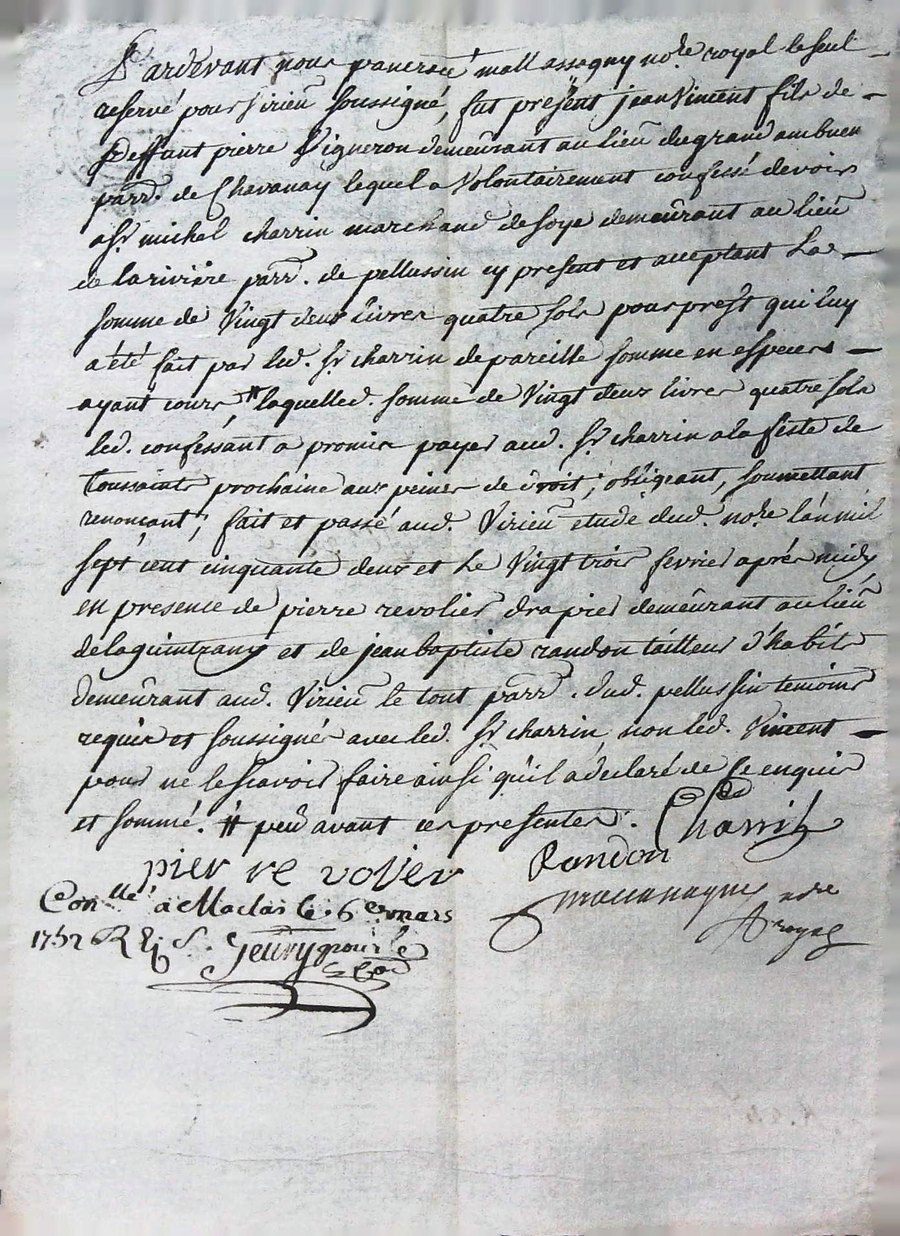 Pardevant nous pancrace mallassagny no.re royal le seul
reservé pour Virieu soussigné, fut présent jean Vincent fils de
deffunt pierre Vigneron demeurant au lieu du grand ambuen
parr. de Chavanay lequel a Volontairement confessé devoir
a Sr. michel charrin marchand de soye demeurant au lieu
de la riviere parr. de pellussin cy present et acceptant La
somme de Vingt deux livres quatre sols pour prest qui luy
a été fait par led. Sr. charrin de pareille somme en especes
ayant cours # laquelle d. somme de Vingt deux livres quatre sols
led. confessant a promis payer aud. Sr. charrin a la feste de
toussaints prochaine aux peines de droit, obligeant, soumettant
renonçant, fait et passé aud. Virieu etude dud. no.re l'an mil
sept cent cinquante deux et Le Vingt trois fevrier après midy
en presence de pierre revolier drapier demeurant au lieu
de la guintrany et de jean baptiste randon tailleur d'habits
demeurant aud. Virieu le tout parr. dud. pellussin temoins
requis et soussignés avec led. Sr. charrin, non led. Vincent
pour ne le scavoir faire ainsi qu'il a declaré de ce enquis
et sommé. # peu avant ces presentes.
Charrin
pier re volier
Randon
mallassagny no.re royal
Con.llé à Maclas le 6e mars
1752 R